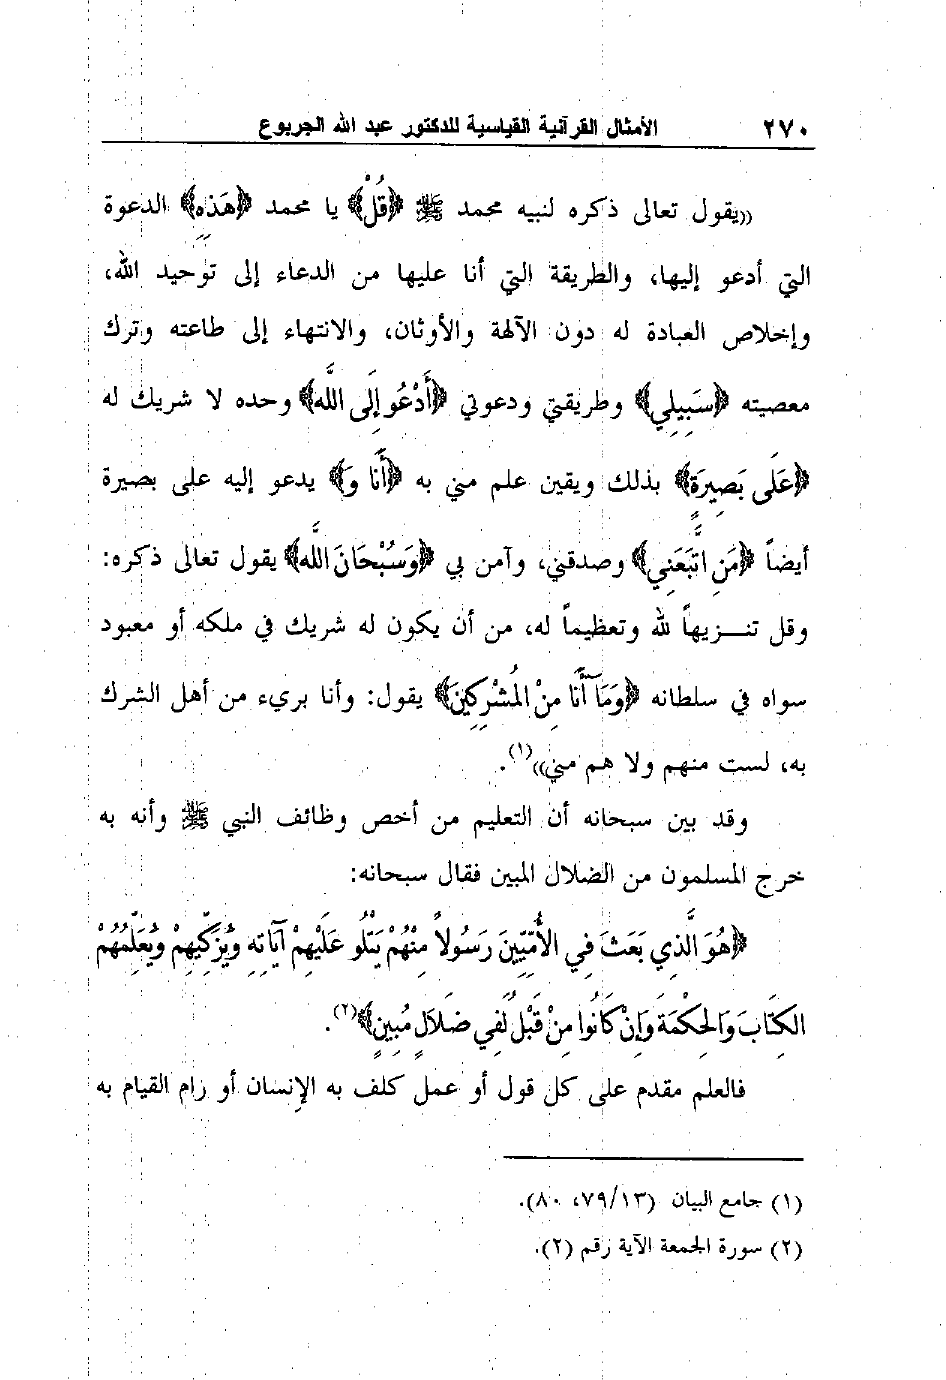 ٢٧٠ الأمثال القرآنية القياسية للدكتور عبد الله الجربوع
((يقول تعالى ذكره لنبيه محمد ﷺ ﴿قُلْ﴾ يا محمد ﴿هَذِهِ﴾ الدعوة
التي أدعو إليها، والطريقة التي أنا عليها من الدعاء إلى توحيد الله،
وإخلاص العبادة له دون الآلهة والأوثان، والانتهاء إلى طاعته وترك
معصيته ﴿سَبِيلِي﴾ وطريقتي ودعوتي ﴿أَدْعُو إِلَى اللَّه﴾ وحده لا شريك له
﴿عَلَى بَصِيرَةٍ﴾ بذلك ويقين علم مني به ﴿أَنَا وَ﴾ يدعو إليه على بصيرة
أيضاً ﴿مَنِ اتَّبَعَنِي﴾ وصدقني، وآمن بي ﴿وَسُبْحَانَ اللَّه﴾ يقول تعالى ذكره:
وقل تنـــزيهاً لله وتعظيماً له، من أن يكون له شريك في ملكه أو معبود
سواه في سلطانه ﴿وَمَآ أَنَا مِنْ الْمُشْرِكِينَ﴾ يقول: وأنا بريء من أهل الشرك
به، لست منهم ولا هم مني))(١).
وقد بين سبحانه أن التعليم من أخص وظائف النبي ﷺ وأنه به
خرج المسلمون من الضلال المبين فقال سبحانه:
﴿هُوَ الَّذِي بَعَثَ فِي الأُمِّيِّينَ رَسُولاً مِنْهُمْ يَتْلُو عَلَيْهِمْ آيَاتِهِ وَيُزَكِّيهِمْ وَيُعَلِّمُهُمْ
الكِتَابَ وَالحِكْمَةَ وَإِنْ كَانُوا مِنْ قَبْلُ لَفِي ضَلاَلٍ مُبِينٍ﴾(٢).
فالعلم مقدم على كل قول أو عمل كلف به الإنسان أو رام القيام به
(١) جامع البيان (٧٩/١٣، ٨٠).
(٢) سورة الجمعة الآية رقم (٢).